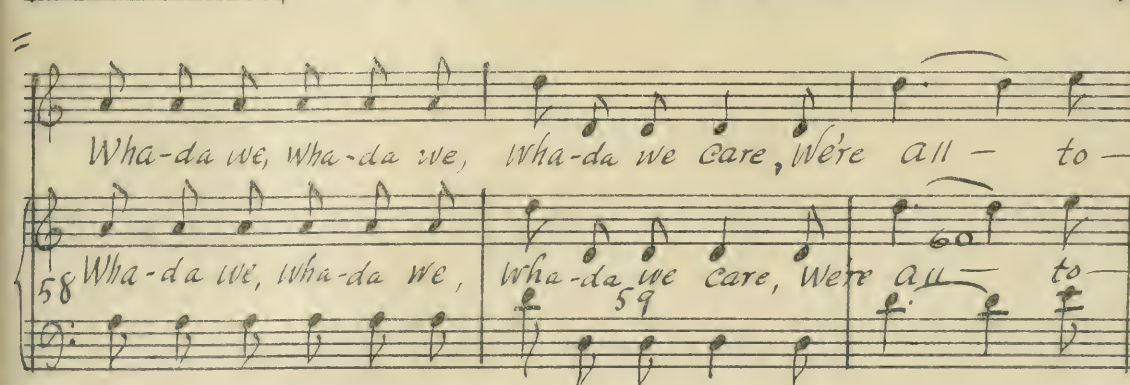 Wha-da we, wha-da we, wha-da we care, We're all — to —
Wha-da we, wha-da we, wha-da we care, We're all — to —
58 59 60